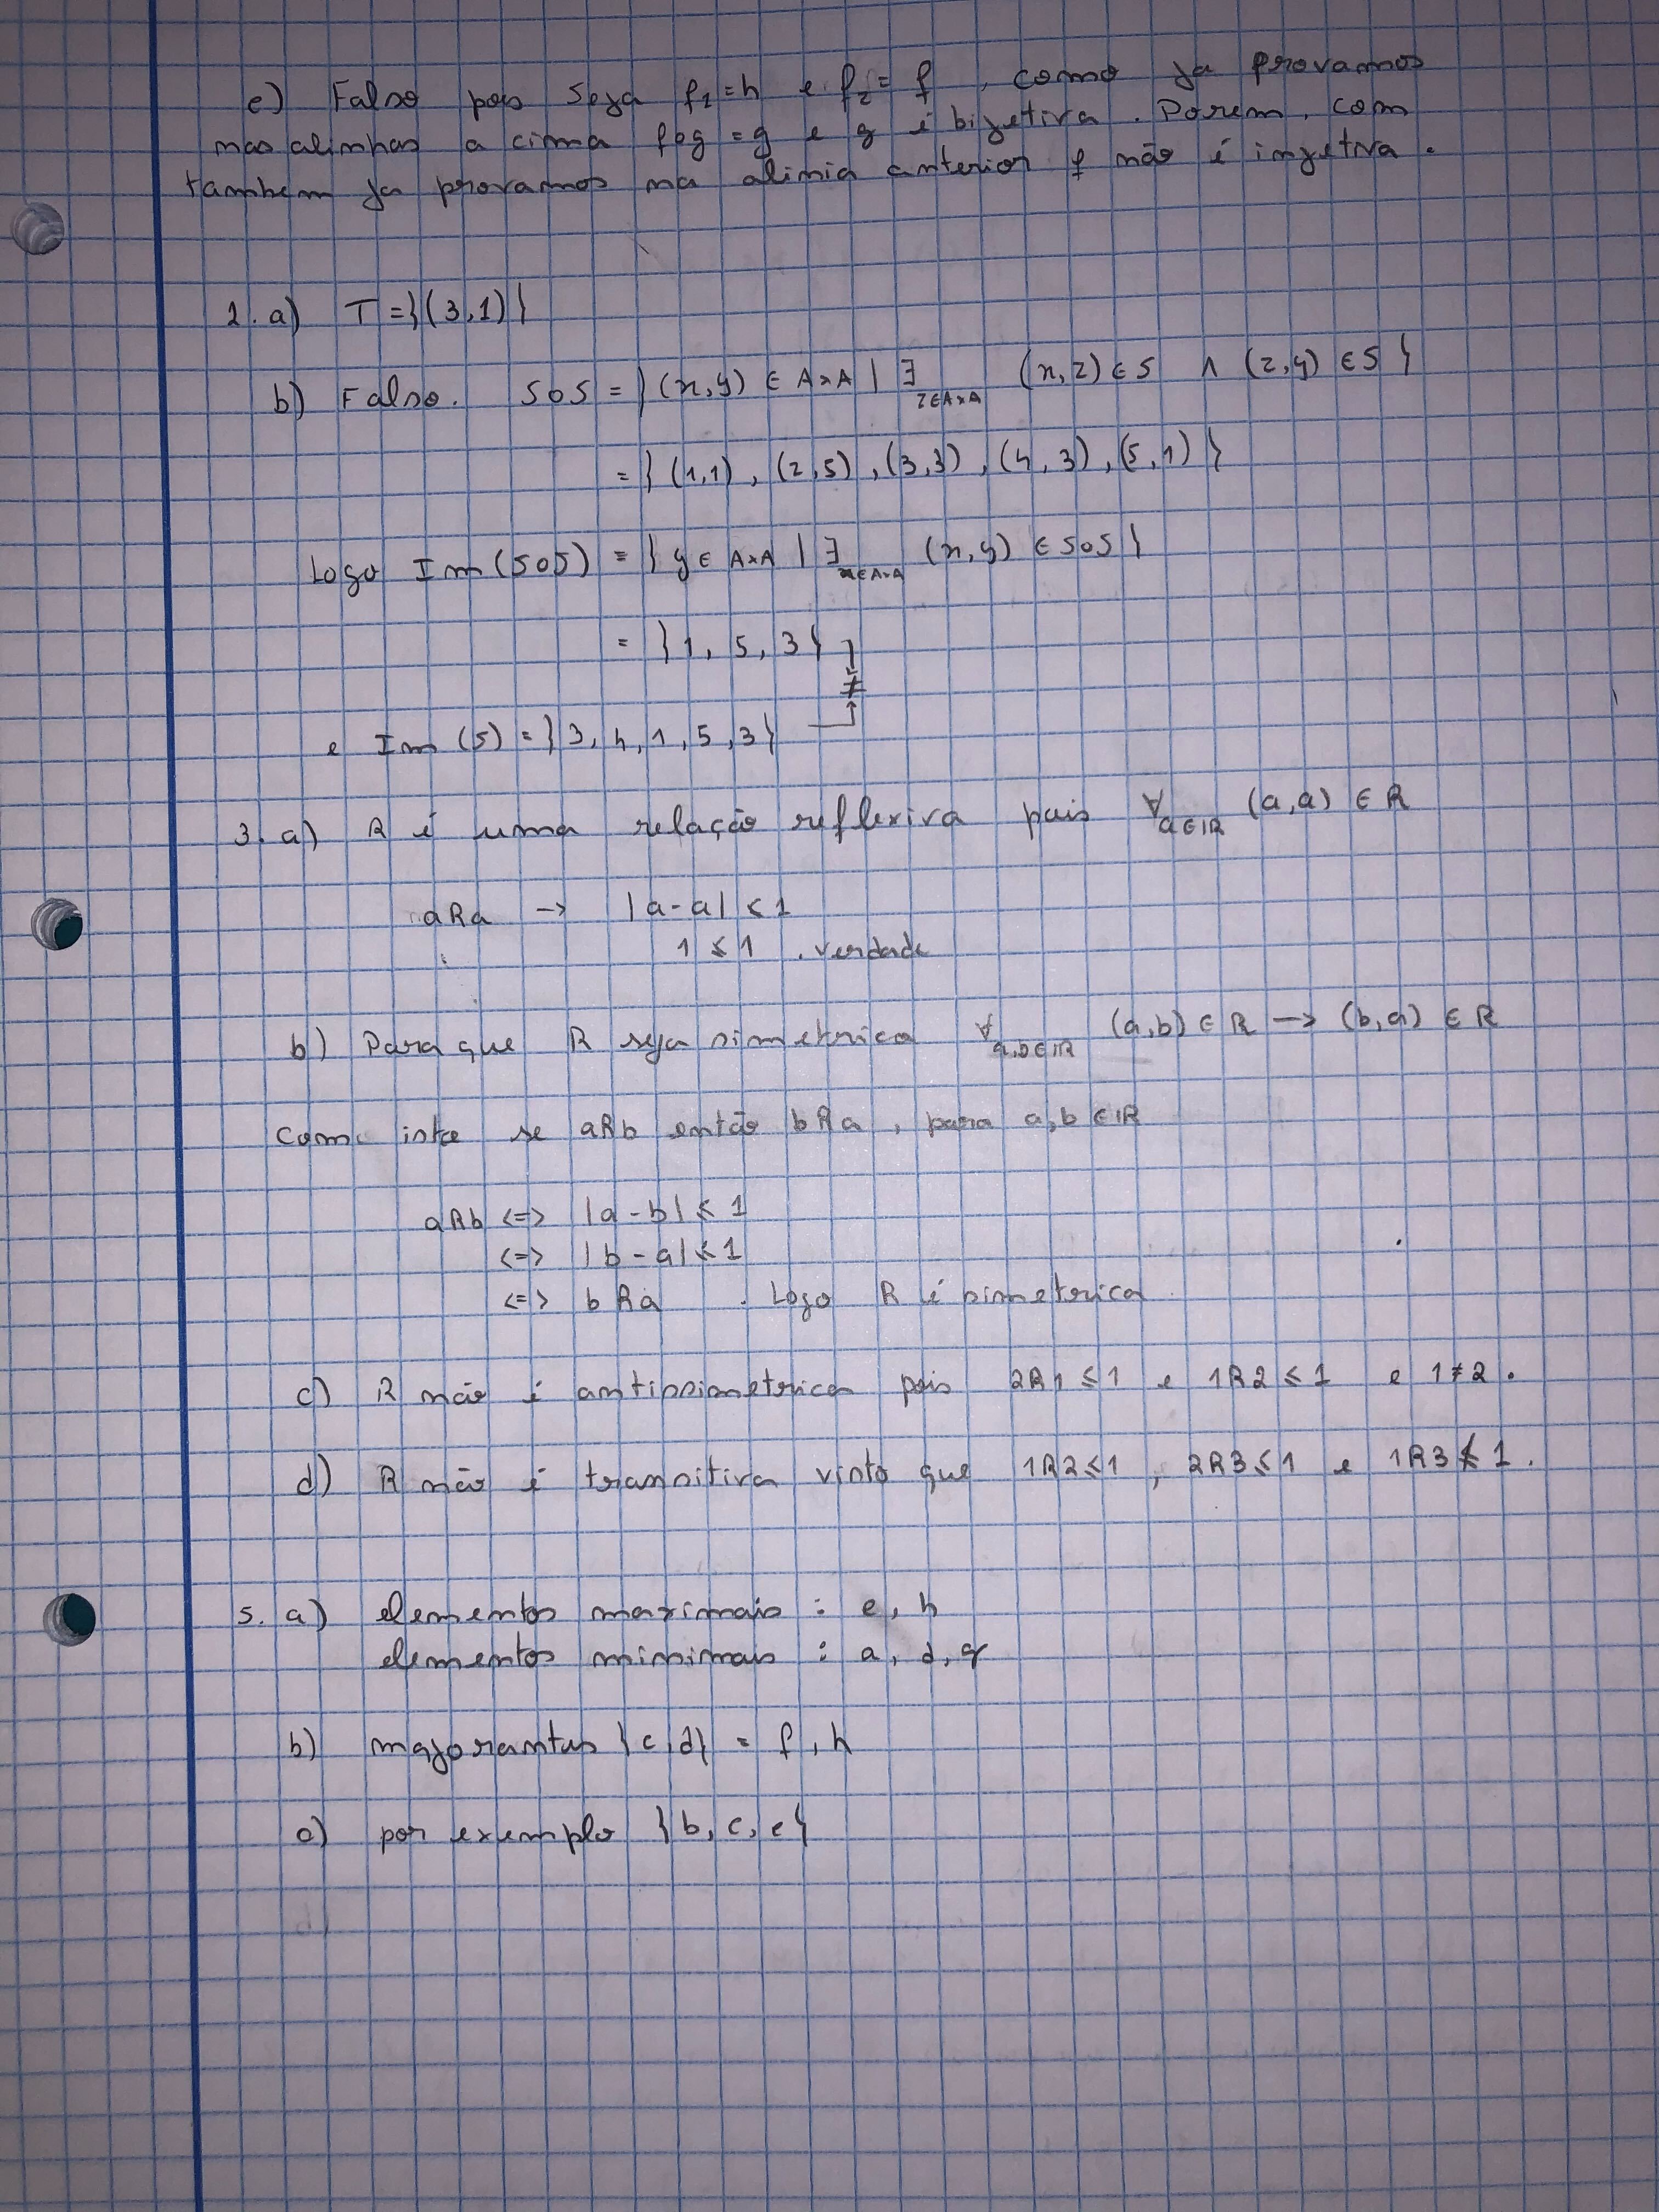 e) Falso pois seja f₁=h e f₂=f, como ja provamos
nas alinhas a cima fog=g e g é bijetiva. Porem, com
tambem ja provamos na alinia anterior f não é injetiva.
2. a) T={(3,1)}
b) Falso. SoS = {(x,y) ∈ A×A | ∃ z∈A×A (x,z)∈S ∧ (z,y)∈S}
= {(1,1), (2,5), (3,3), (4,3), (5,1)}
Logo Im(SoS) = {y∈A×A | ∃ x∈A×A (x,y) ∈ SoS}
= {1, 5, 3}
≠
e Im(S) = {3, 4, 1, 5, 3}
3. a) R é uma relação reflexiva pois ∀ a∈ℝ (a,a) ∈ R
aRa → |a-a| ≤ 1
1 ≤ 1 . verdade
b) Para que R seja simetrica ∀ a,b∈ℝ (a,b) ∈ R → (b,a) ∈ R
Com isto se aRb então bRa, para a,b ∈ℝ
aRb <=> |a-b| ≤ 1
<=> |b-a| ≤ 1
<=> bRa . Logo R é simetrica.
c) R não é antissimetrica pois 2R1 ≤ 1 e 1R2 ≤ 1 e 1≠2.
d) R não é transitiva visto que 1R2 ≤ 1, 2R3 ≤ 1 e 1R3 ≰ 1.
5. a) elementos maximais : e, h
elementos minimais : a, d, g
b) majorantes {c,d} = f, h
c) por exemplo {b, c, e}